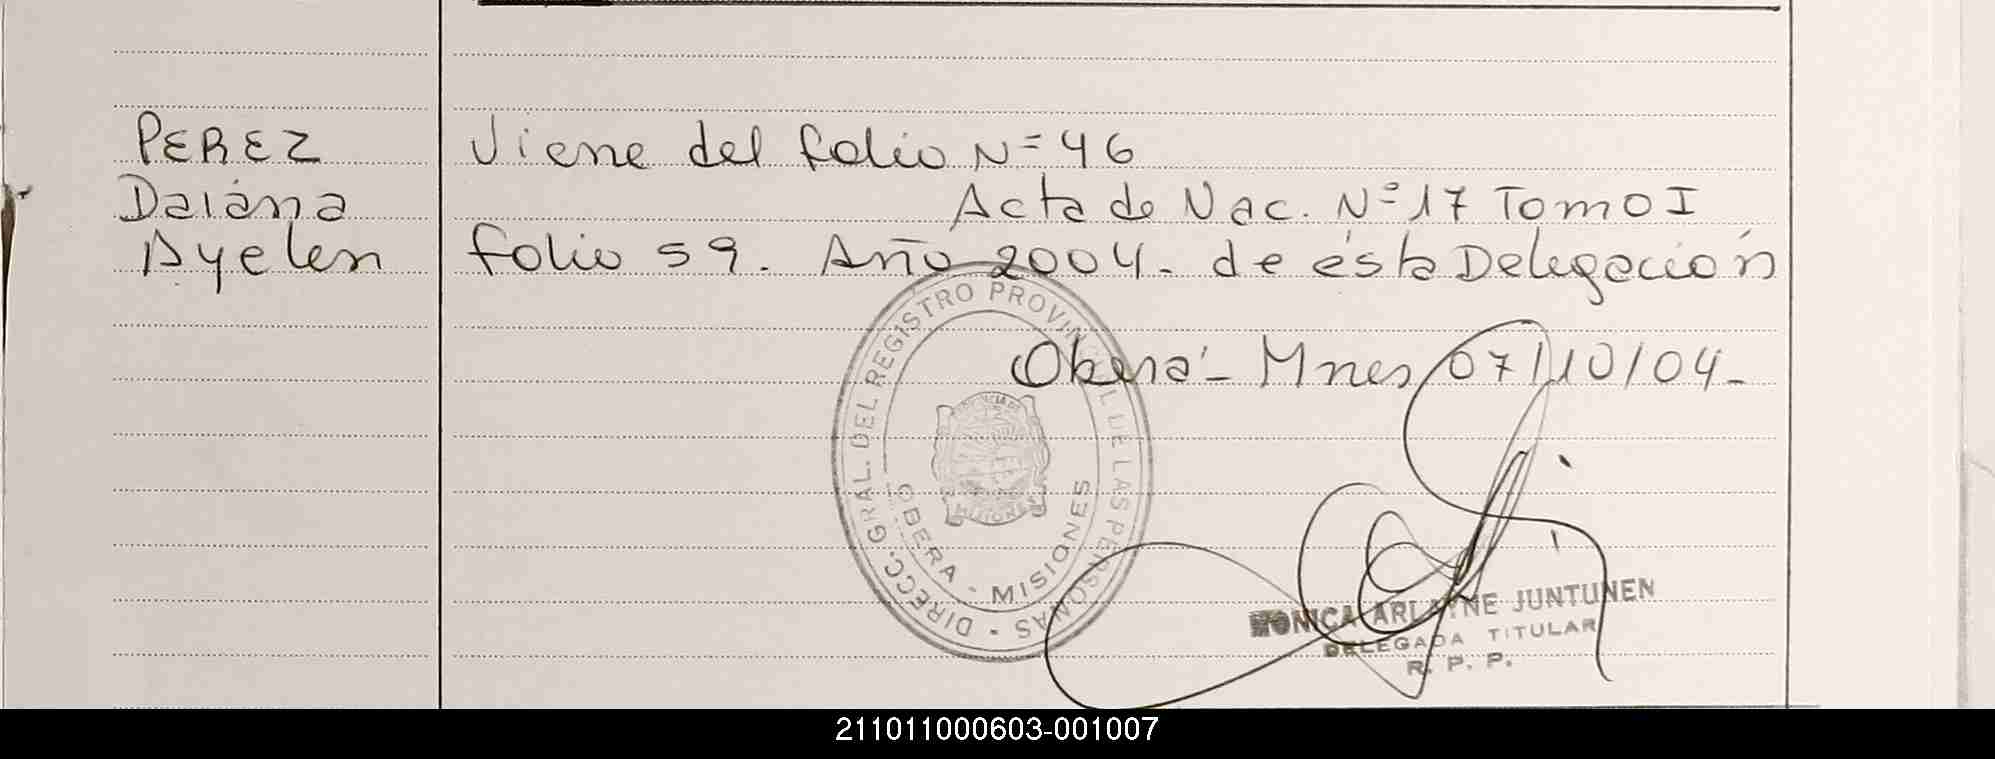 PEREZ
Daiána
Ayelen
Viene del folio N= 46
Acta de Nac. Nº 17 Tomo I
folio 59. Año 2004. de ésta Delegación
Oberá - Mnes 07/10/04-
DIRECC. GRAL. DEL REGISTRO PROVINCIAL DE LAS PERSONAS -
OBERA - MISIONES
PROVINCIA DE
MISIONES
MONICA ARLAYNE JUNTUNEN
DELEGADA TITULAR
R. P. P.
211011000603-001007